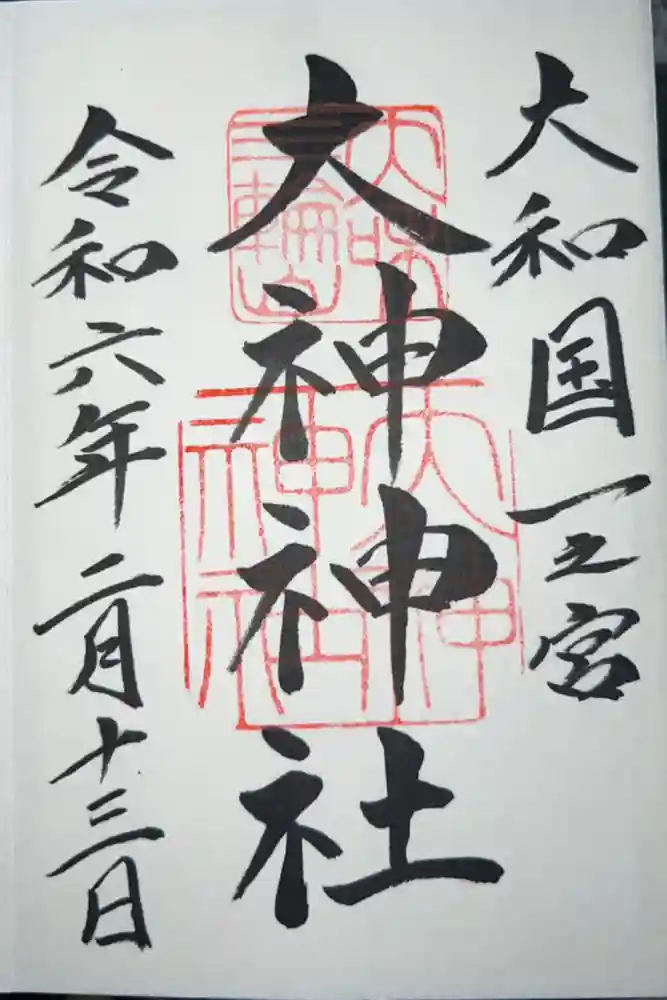 大和国一之宮
大神神社
令和六年二月十三日
三輪山
大神神社